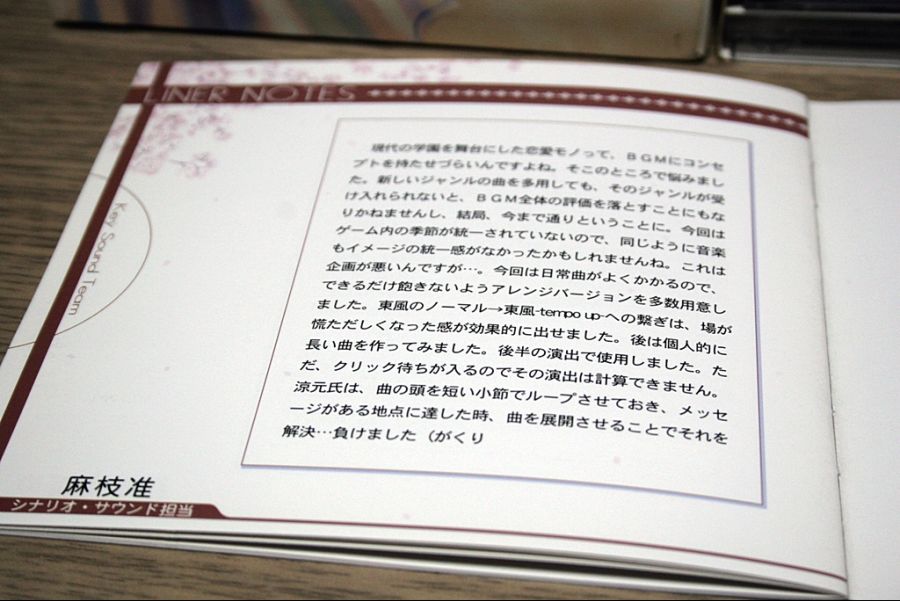 LINER NOTES
Key Sound Team
現代の学園を舞台にした恋愛モノって、BGMにコンセ
プトを持たせづらいんですよね。そこのところで悩みまし
た。新しいジャンルの曲を多用しても、そのジャンルが受
け入れられないと、BGM全体の評価を落とすことにもな
りかねませんし、結局、今まで通りということに。今回は
ゲーム内の季節が統一されていないので、同じように音楽
もイメージの統一感がなかったかもしれませんね。これは
企画が悪いんですが…。今回は日常曲がよくかかるので、
できるだけ飽きないようアレンジバージョンを多数用意し
ました。東風のノーマル→東風-tempo up-への繋ぎは、場が
慌ただしくなった感が効果的に出せました。後は個人的に
長い曲を作ってみました。後半の演出で使用しました。た
だ、クリック待ちが入るのでその演出は計算できません。
涼元氏は、曲の頭を短い小節でループさせておき、メッセ
ージがある地点に達した時、曲を展開させることでそれを
解決…負けました（がくり
麻枝准
シナリオ・サウンド担当